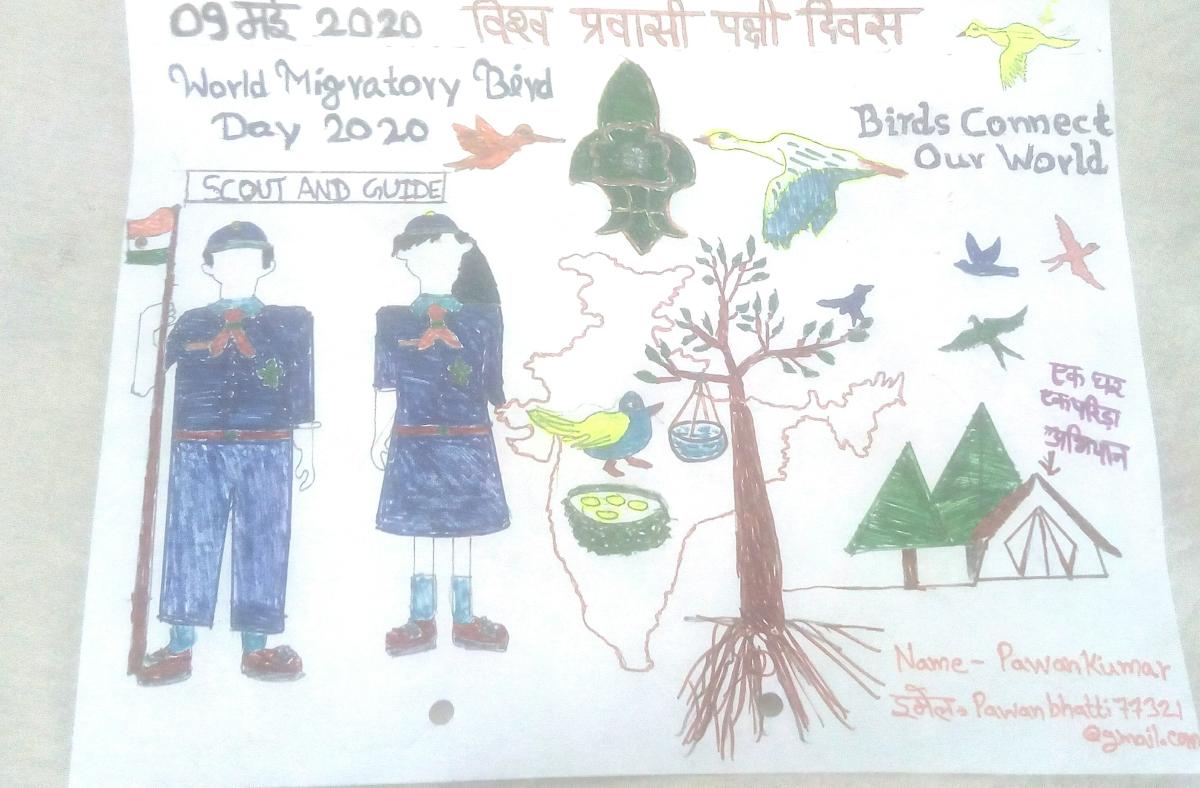 09 मई 2020 विश्व प्रवासी पक्षी दिवस
World Migratory Bird
Day 2020
Birds Connect
Our World
SCOUT AND GUIDE
एक घर
एक परिंडा
अभियान
Name - Pawan Kumar
ईमेल. Pawanbhatti77321
@gmail.com